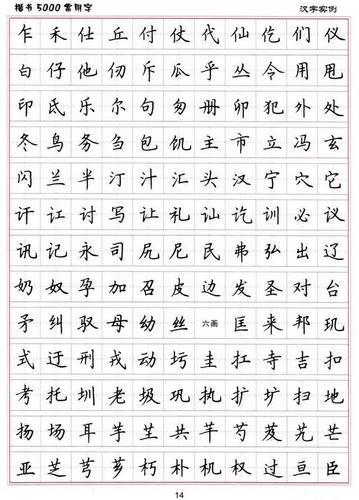 楷书5000常用字 汉字实例
乍禾仕丘付仗代仙仡们仪
白仔他仞斥瓜乎丛令用甩
印氐乐尔句匆册卯犯外处
冬鸟务刍包饥主市立冯玄
闪兰半汀汁汇头汉宁穴它
讦讧讨写让礼讪讫训必议
讯记永司尻尼民弗弘出辽
奶奴孕加召皮边发圣对台
矛纠驭母幼丝六画匡来邦玑
式迂刑戎动圬圭扛寺吉扣
考托圳老圾巩执扩圹扫地
扬场耳芋共芊芍芨芄芒
亚芝芎芗朽朴机权过亘臣
14